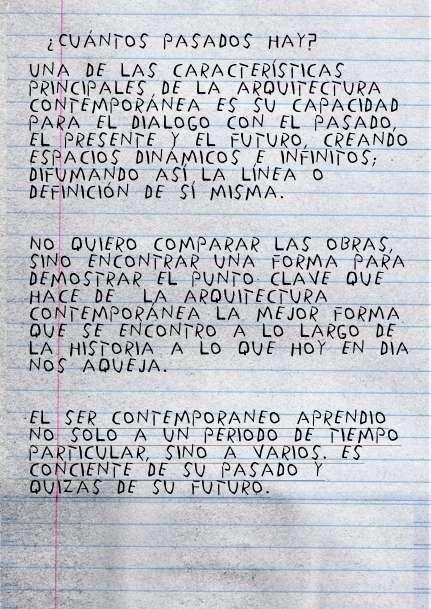 ¿CUÁNTOS PASADOS HAY?
UNA DE LAS CARACTERÍSTICAS
PRINCIPALES DE LA ARQUITECTURA
CONTEMPORÁNEA ES SU CAPACIDAD
PARA EL DIALOGO CON EL PASADO,
EL PRESENTE Y EL FUTURO, CREANDO
ESPACIOS DINÁMICOS E INFINITOS;
DIFUMANDO ASÍ LA LÍNEA O
DEFINICIÓN DE SÍ MISMA.
NO QUIERO COMPARAR LAS OBRAS,
SINO ENCONTRAR UNA FORMA PARA
DEMOSTRAR EL PUNTO CLAVE QUE
HACE DE LA ARQUITECTURA
CONTEMPORÁNEA LA MEJOR FORMA
QUE SE ENCONTRO A LO LARGO DE
LA HISTORIA A LO QUE HOY EN DIA
NOS AQUEJA.
EL SER CONTEMPORANEO APRENDIO
NO SOLO A UN PERIODO DE TIEMPO
PARTICULAR, SINO A VARIOS. ES
CONCIENTE DE SU PASADO Y
QUIZAS DE SU FUTURO.